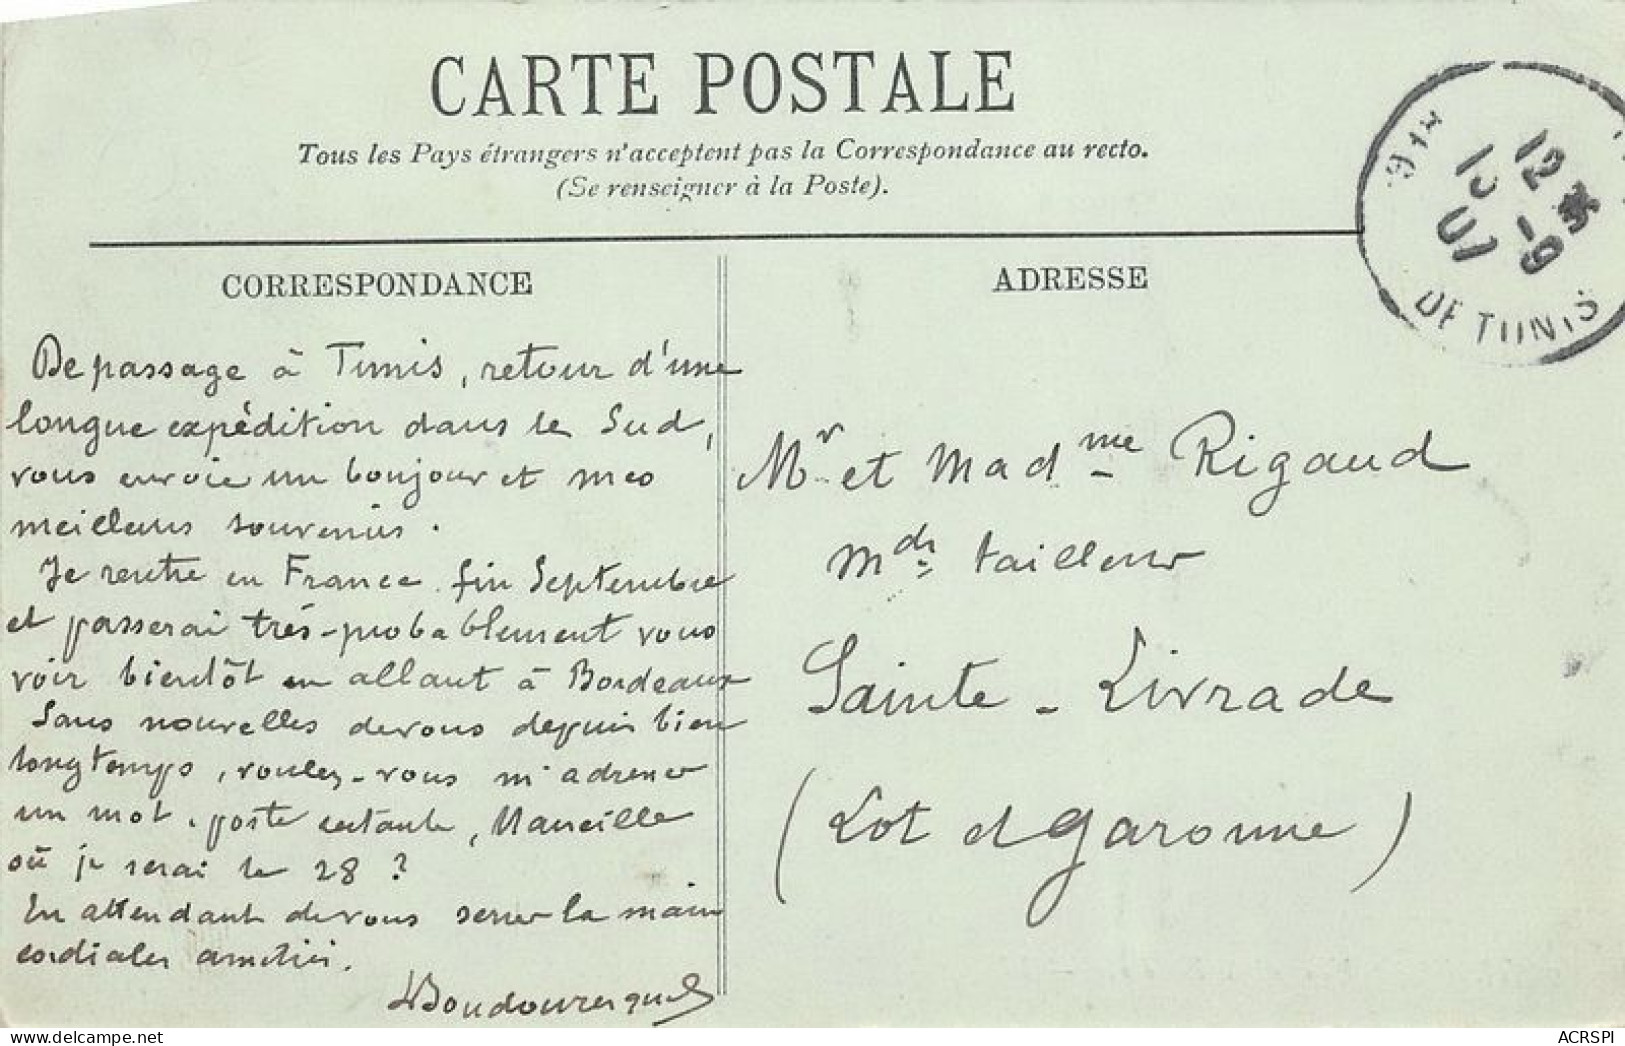 CARTE POSTALE
Tous les Pays étrangers n'acceptent pas la Correspondance au recto.
(Se renseigner à la Poste).
12
07 -9
DE TUNIS
CORRESPONDANCE
De passage à Tunis, retour d'une
longue expédition dans le Sud,
vous envoie un bonjour et mes
meilleurs souvenirs.
Je rentre en France fin Septembre
et passerai très-probablement vous
voir bientôt en allant à Bordeaux
Sans nouvelles de vous depuis bien
longtemps, voulez-vous m'adresser
un mot, poste restante, Marseille
où je serai le 28 ?
En attendant de vous serrer la main
cordiales amitiés.
ADRESSE
Mr et Madme Rigaud
Mds tailleur
Sainte-Livrade
(Lot et Garonne)
ACRSPI